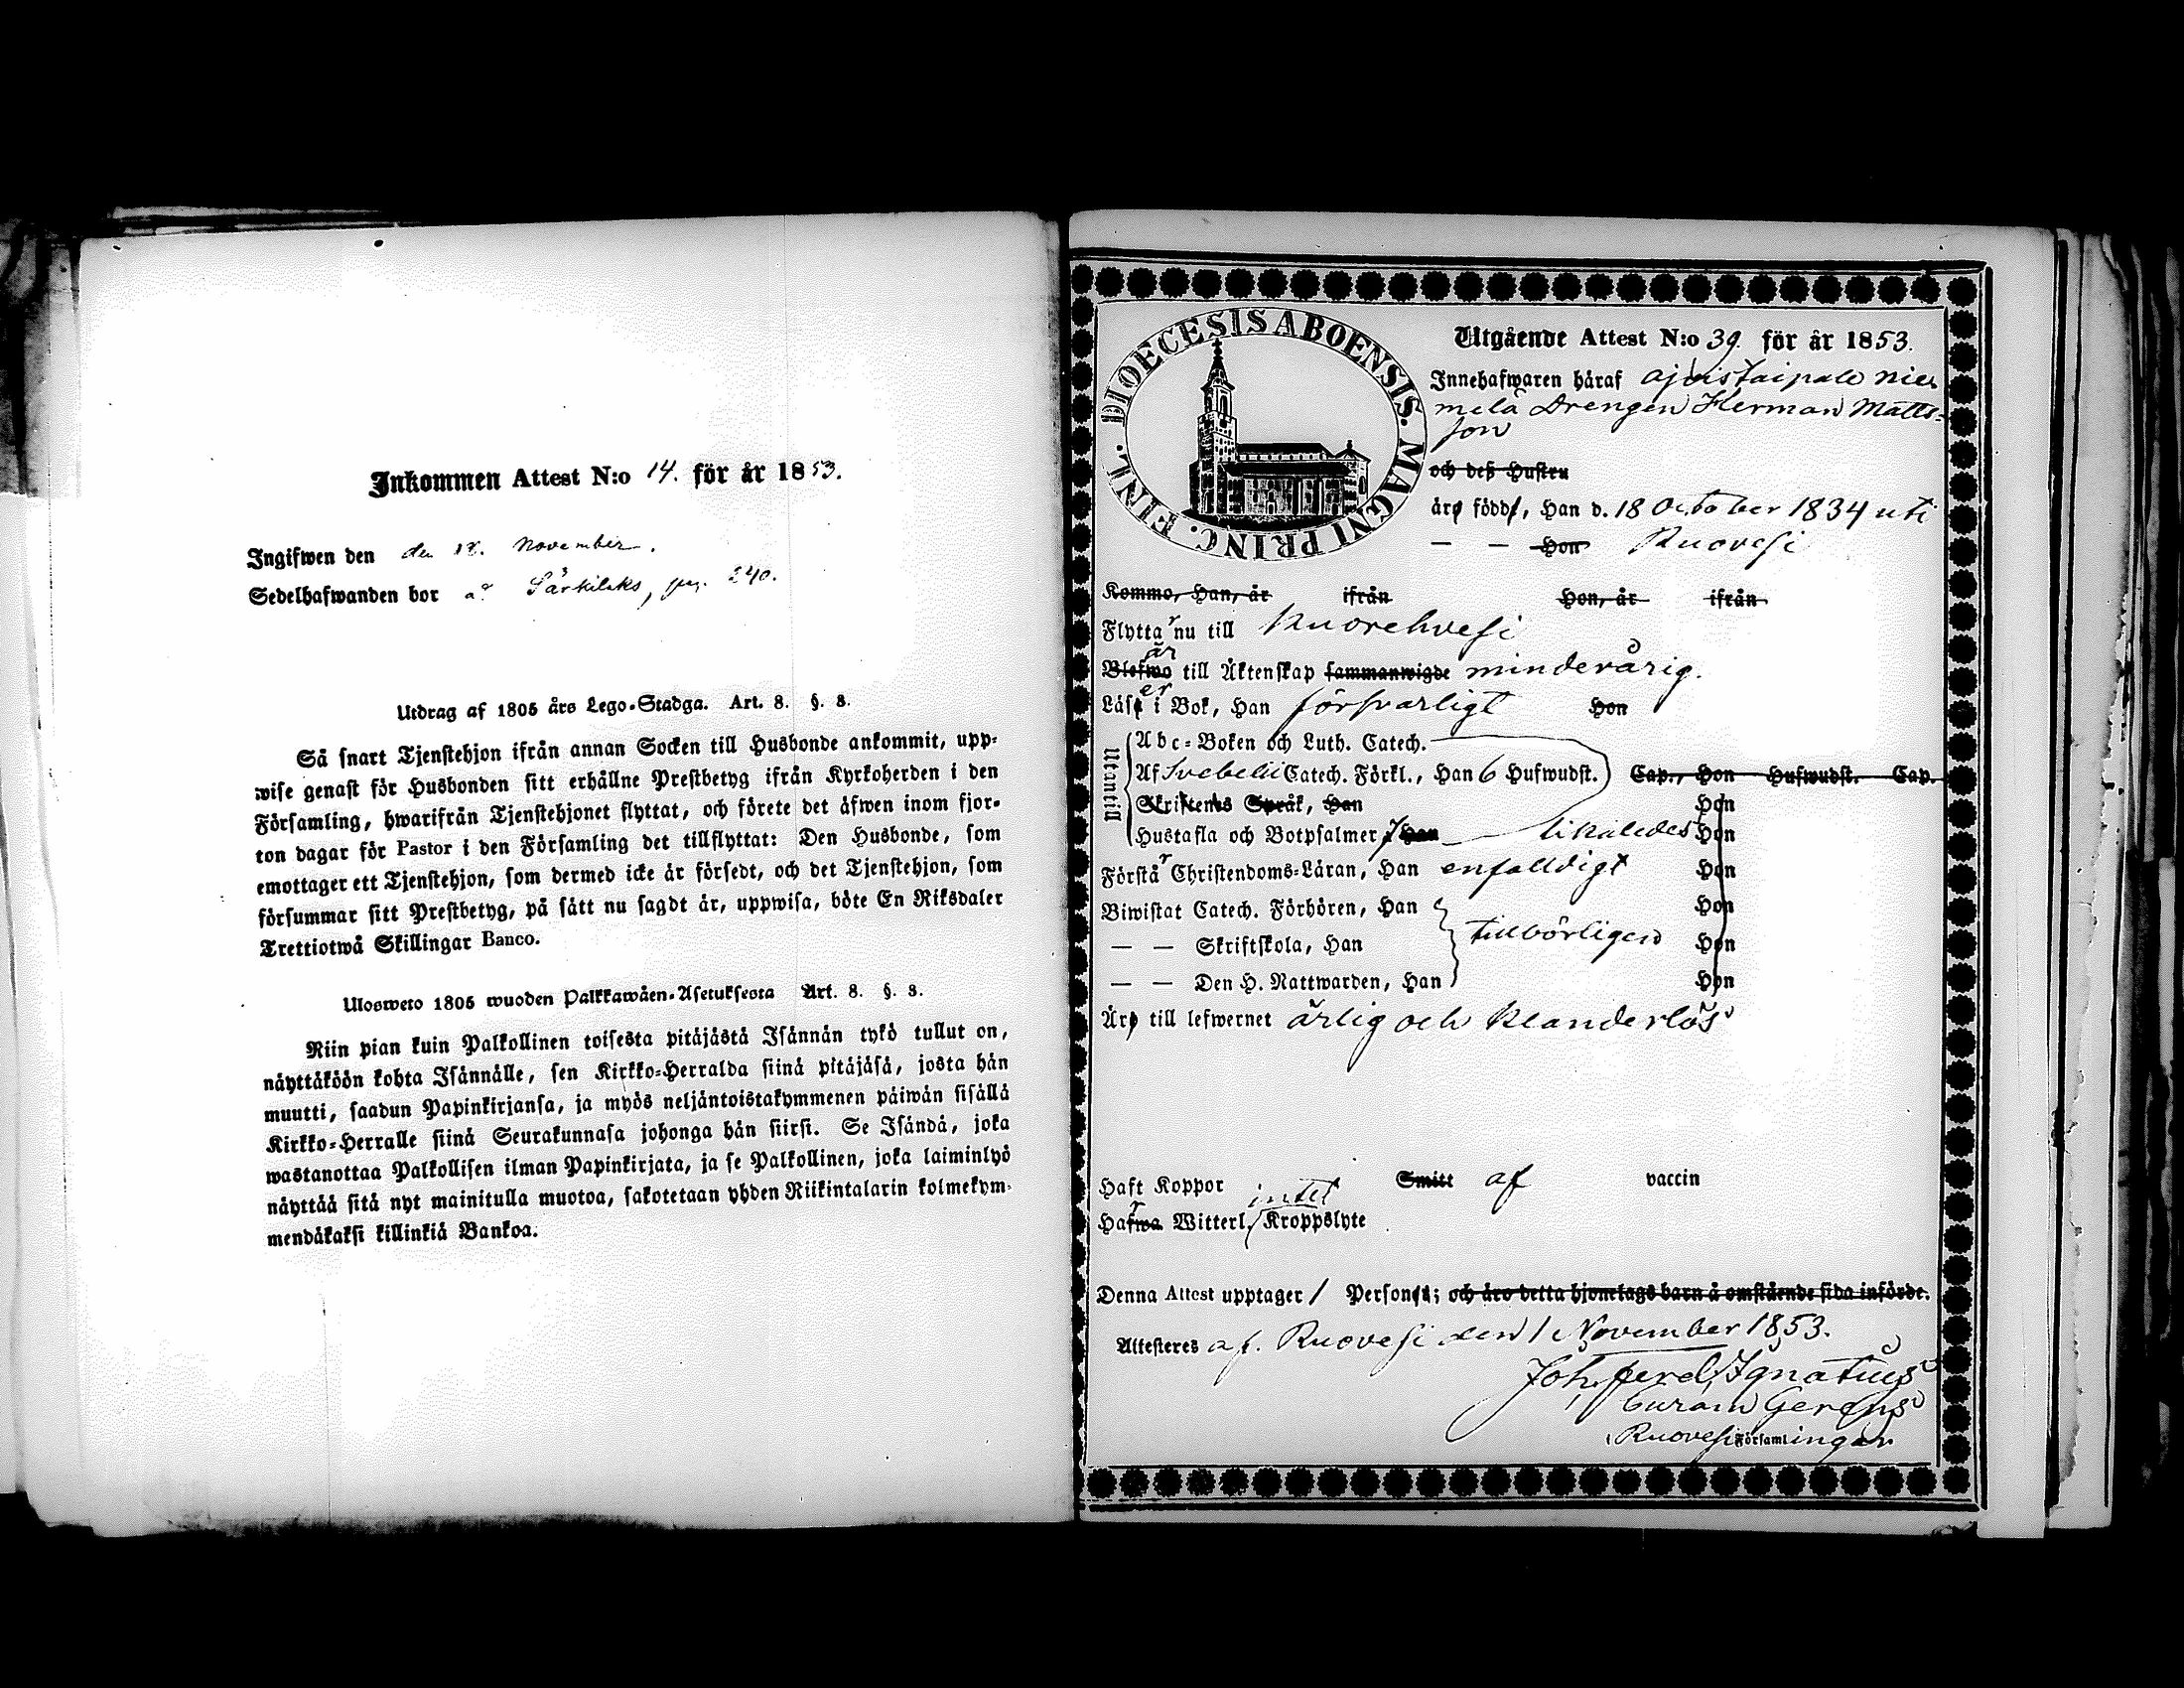 Inkommen Attest N:o 14. för år 1853.
Ingifwen den den 18. November.
Sedelhafwanden bor å Särkilaks, pag. 240.
Utdrag af 1805 års Lego-Stadga. Art. 8. §. 3.
Så snart Tjenstehjon ifrån annan Socken till Husbonde ankommit, upp-
wise genast för Husbonden sitt erhållne Prestbetyg ifrån Kyrkoherden i den
Församling, hwarifrån Tjenstehjonet flyttat, och förete det äfwen inom fjor-
ton dagar för Pastor i den Församling det tillflyttat: Den Husbonde, som
emottager ett Tjenstehjon, som dermed icke är försedt, och det Tjenstehjon, som
försummar sitt Prestbetyg, på sätt nu sagdt är, uppwisa, böte En Riksdaler
Trettiotwå Skillingar Banco.
Ulosweto 1805 wuoden Palkkawäen-Asetuksesta Art. 8. §. 3.
Niin pian kuin Palkollinen toisesta pitäjästä Isännän tykö tullut on,
näyttäköön kohta Isännälle, sen Kirkko-Herralda siinä pitäjäsä, josta hän
muutti, saadun Papinkirjansa, ja myös neljäntoistakymmenen päiwän sisällä
Kirkko-Herralle siinä Seurakunnasa johonga hän siirsi. Se Isändä, joka
wastanottaa Palkollisen ilman Papinkirjata, ja se Palkollinen, joka laiminlyö
näyttää sitä nyt mainitulla muotoa, sakotetaan yhden Riikintalarin kolmekym-
mendäkaksi killinkiä Bankoa.
DIOECESIS ABOENSIS. MAGNI PRINC. FINL.
Utgående Attest N:o 39. för år 1853.
Innehafwaren häraf Ajostaipale Nie-
melä Drengen Herman Matts-
son
och deß Hustru
äro född, Han d. 18 October 1834 uti
— — Hon Ruovesi
Kommo, Han, år ifrån Hon, år ifrån
Flyttar nu till Kuorehvesi
Blefwo är till Äktenskap sammanwigde minderårig.
Läser i Bok, Han försvarligt Hon
Utantill
Abc-Boken och Luth. Catech.
Af Svebelii Catech. Förkl., Han 6 Hufwudst. Cap., Hon Hufwudst. Cap.
Skriftenes Språk, Han Hon
Hustafla och Botpsalmer, Han likaledes Hon
Förstår Christendoms-Läran, Han enfalldigt Hon
Biwistat Catech. Förhören, Han Hon
— — Skriftskola, Han tillbörligen Hon
— — Den H. Nattwarden, Han Hon
Äro till lefwernet ärlig och klanderlös
Haft Koppor Smitt af vaccin
Hafwa Witterl. intet Kroppslyte
Denna Attest upptager 1 Person; och äro detta hjonelags barn å omstående sida införde.
Attesteres af. Ruovesi den 1 November 1853.
Joh. Ferd. Ignatius
Curam Gerens
Ruovesi Församlingar